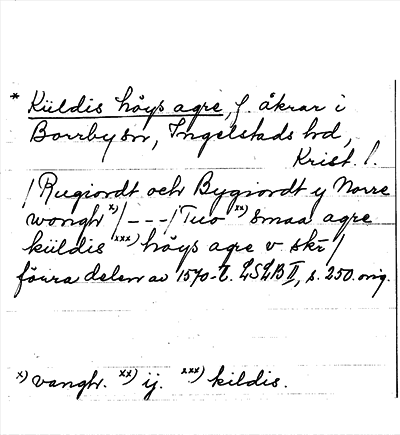 * Küldis höys agre, f. åkrar i
Borrby sn, Ingelstads hd,
Krist. l.
/Rugiordt och Bygiordt y Norre
wongh x)/---/Tuo xx) smaa agre
küldis xxx) höys agre v skr /
förra delen av 1570-t. LSLB II, s. 250. orig.
x) vangh. xx) ij. xxx) kildis.